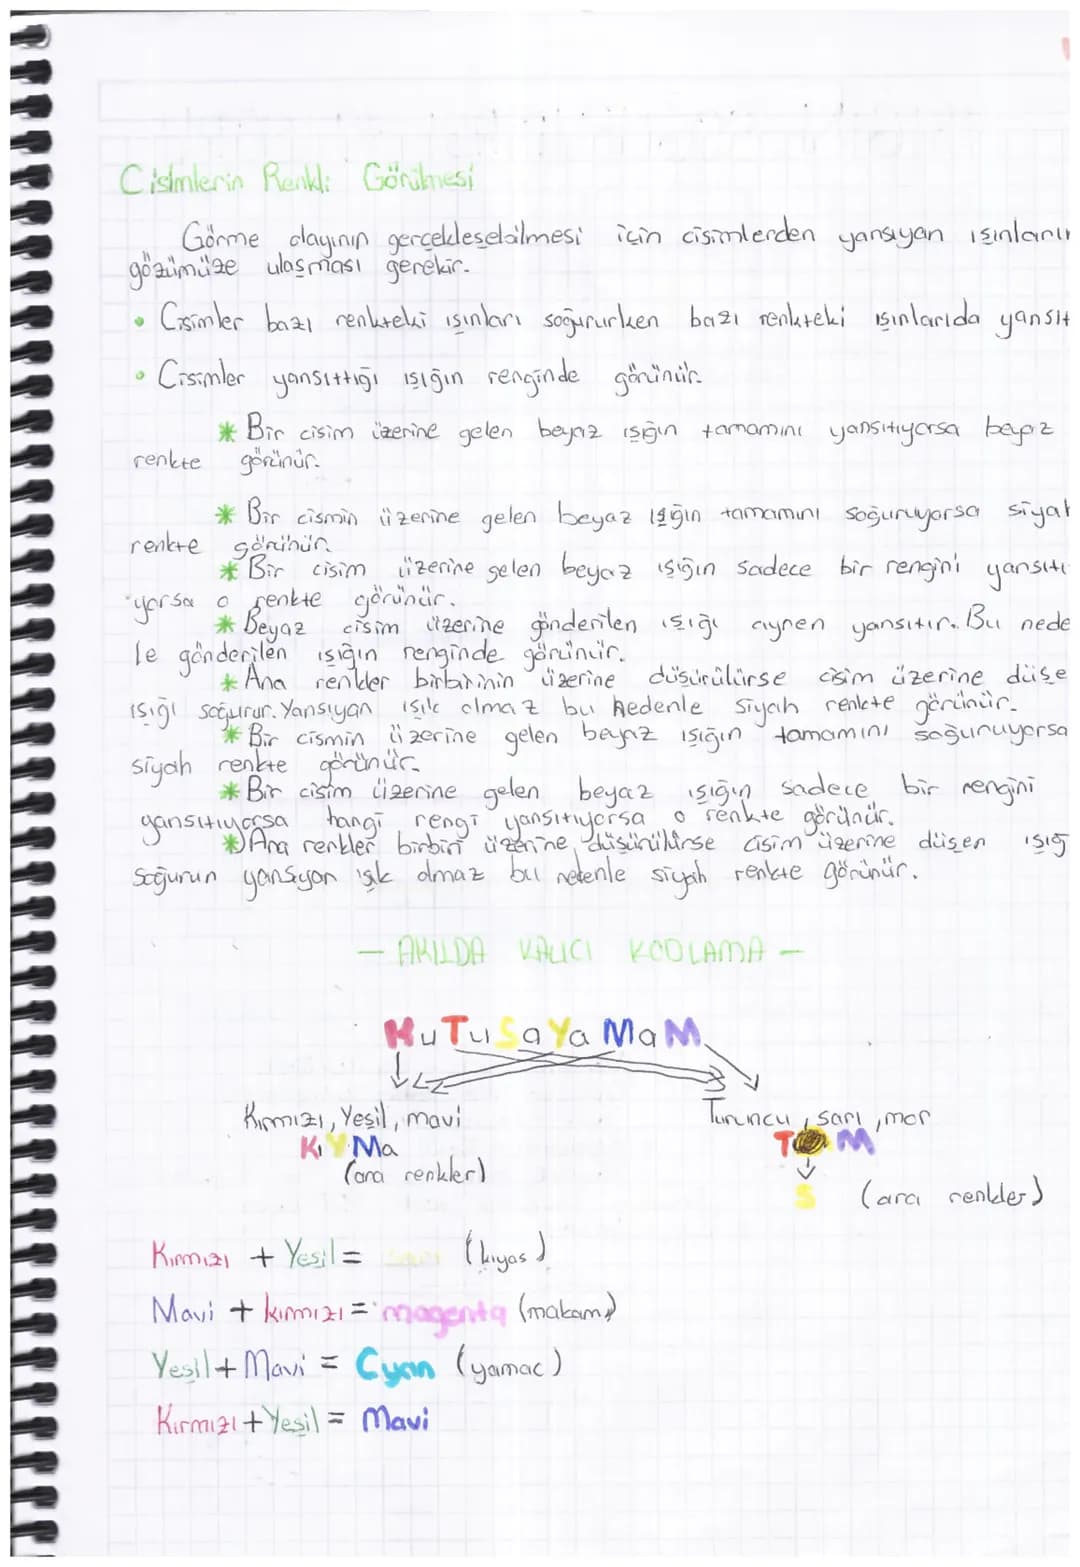 Cisimlerin Renkli Görülmesi
Görme olayının gerçekleşebilmesi için cisimlerden yansıyan ışınların
gözümüze ulaşması gerekir.
• Cisimler bazı renkteki ışınları soğururken bazı renkteki ışınlarıda yansıt
• Cisimler yansıttığı ışığın renginde görünür.
* Bir cisim üzerine gelen beyaz ışığın tamamını yansıtıyorsa beyaz
renkte görünür.
* Bir cismin üzerine gelen beyaz ışığın tamamını soğuruyorsa siyah
renkte görünür.
* Bir cisim üzerine gelen beyaz ışığın sadece bir rengini yansıtı-
yorsa o renkte görünür.
* Beyaz cisim üzerine gönderilen ışığı aynen yansıtır. Bu nede
le gönderilen ışığın renginde görünür.
* Ana renkler birbirinin üzerine düşürülürse cisim üzerine düşe
ışığı soğurur. Yansıyan ışık olmaz bu nedenle siyah renkte görünür.
* Bir cismin üzerine gelen beyaz ışığın tamamını soğuruyorsa
siyah renkte görünür.
* Bir cisim üzerine gelen beyaz ışığın sadece bir rengini
yansıtıyorsa hangi rengi yansıtıyorsa o renkte görünür.
* Ana renkler birbiri üzerine düşürülürse cisim üzerine düşen ışığ
soğurun yansıyan ışık olmaz bu nedenle siyah renkte görünür.
- AKILDA KALICI KODLAMA -
KuTuSaYaMaM
Kırmızı, Yeşil, mavi
Turuncu, sarı, mor
KıYMa
T M
(ara renkler)
S (ara renkler)
Kırmızı + Yeşil = sarı (kıyas)
Mavi + kırmızı = magenta (makam)
Yeşil + Mavi = Cyan (yamac)
Kırmızı + Yeşil = Mavi